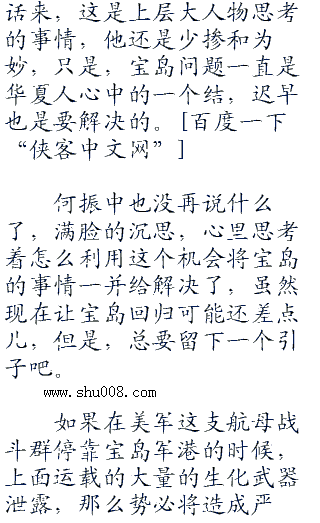 话来，这是上层大人物思考
的事情，他还是少掺和为
妙，只是，宝岛问题一直是
华夏人心中的一个结，迟早
也是要解决的。[百度一下
“侠客中文网”]
何振中也没再说什么
了，满脸的沉思，心里思考
着怎么利用这个机会将宝岛
的事情一并给解决了，虽然
现在让宝岛回归可能还差点
儿，但是，总要留下一个引
子吧。
www.shu008.com
如果在美军这支航母战
斗群停靠宝岛军港的时候，
上面运载的大量的生化武器
泄露，那么势必将造成严